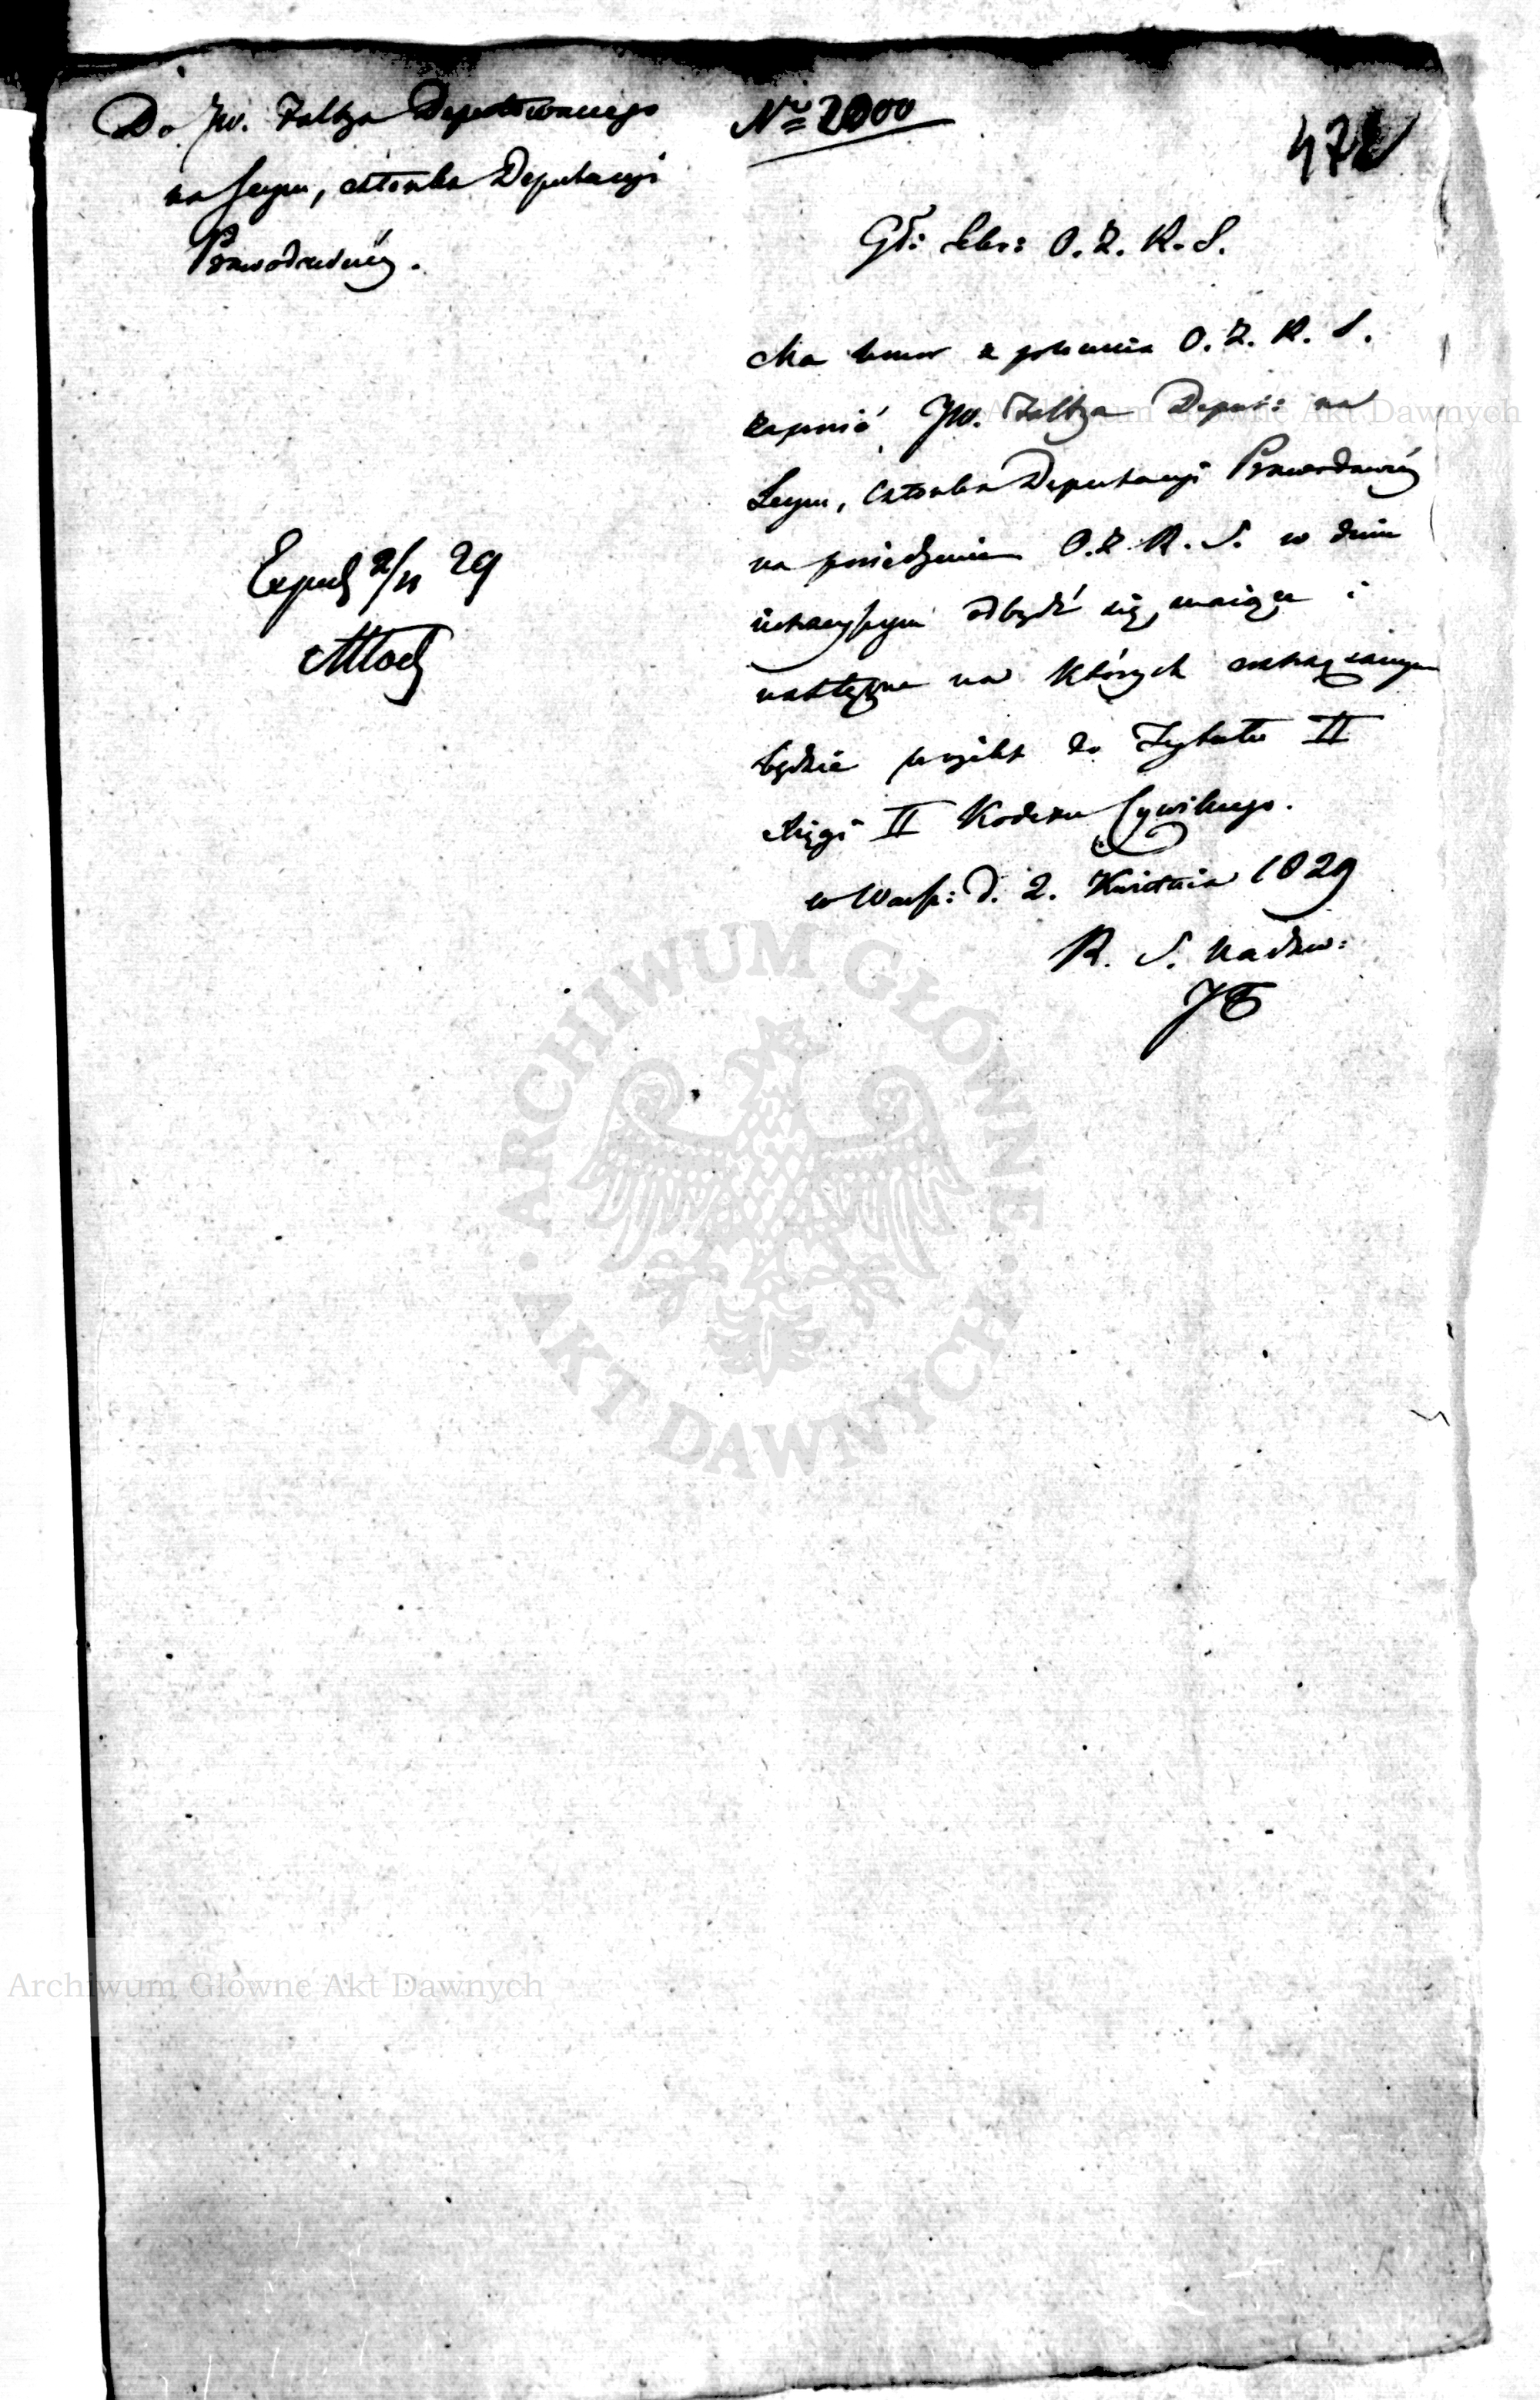 Do JW. Faltza Deputowanego
na Seym, członka Deputacyi
Prawodawczéy.
Exped 2/IV 29
Młock
Nro 2000
472
Gł: Sekr: O. Z. R. S.
Ma honor z polecenia O. Z. R. S.
zaprosić JW. Faltza Deput: na
Seym, Członka Deputacyi Prawodawczéy
na posiedzenie O. Z. R. S. w dniu
iutrzeyszym odbydź się maiące i
następne na których
będzie proiekt do Tytułu II
Xięgi II Kodexu Cywilnego.
w Warsz: d. 2. Kwietnia 1829
R. S. Nadzw:
ARCHIWUM GŁÓWNE
AKT DAWNYCH
Archiwum Główne Akt Dawnych
Archiwum Główne Akt Dawnych